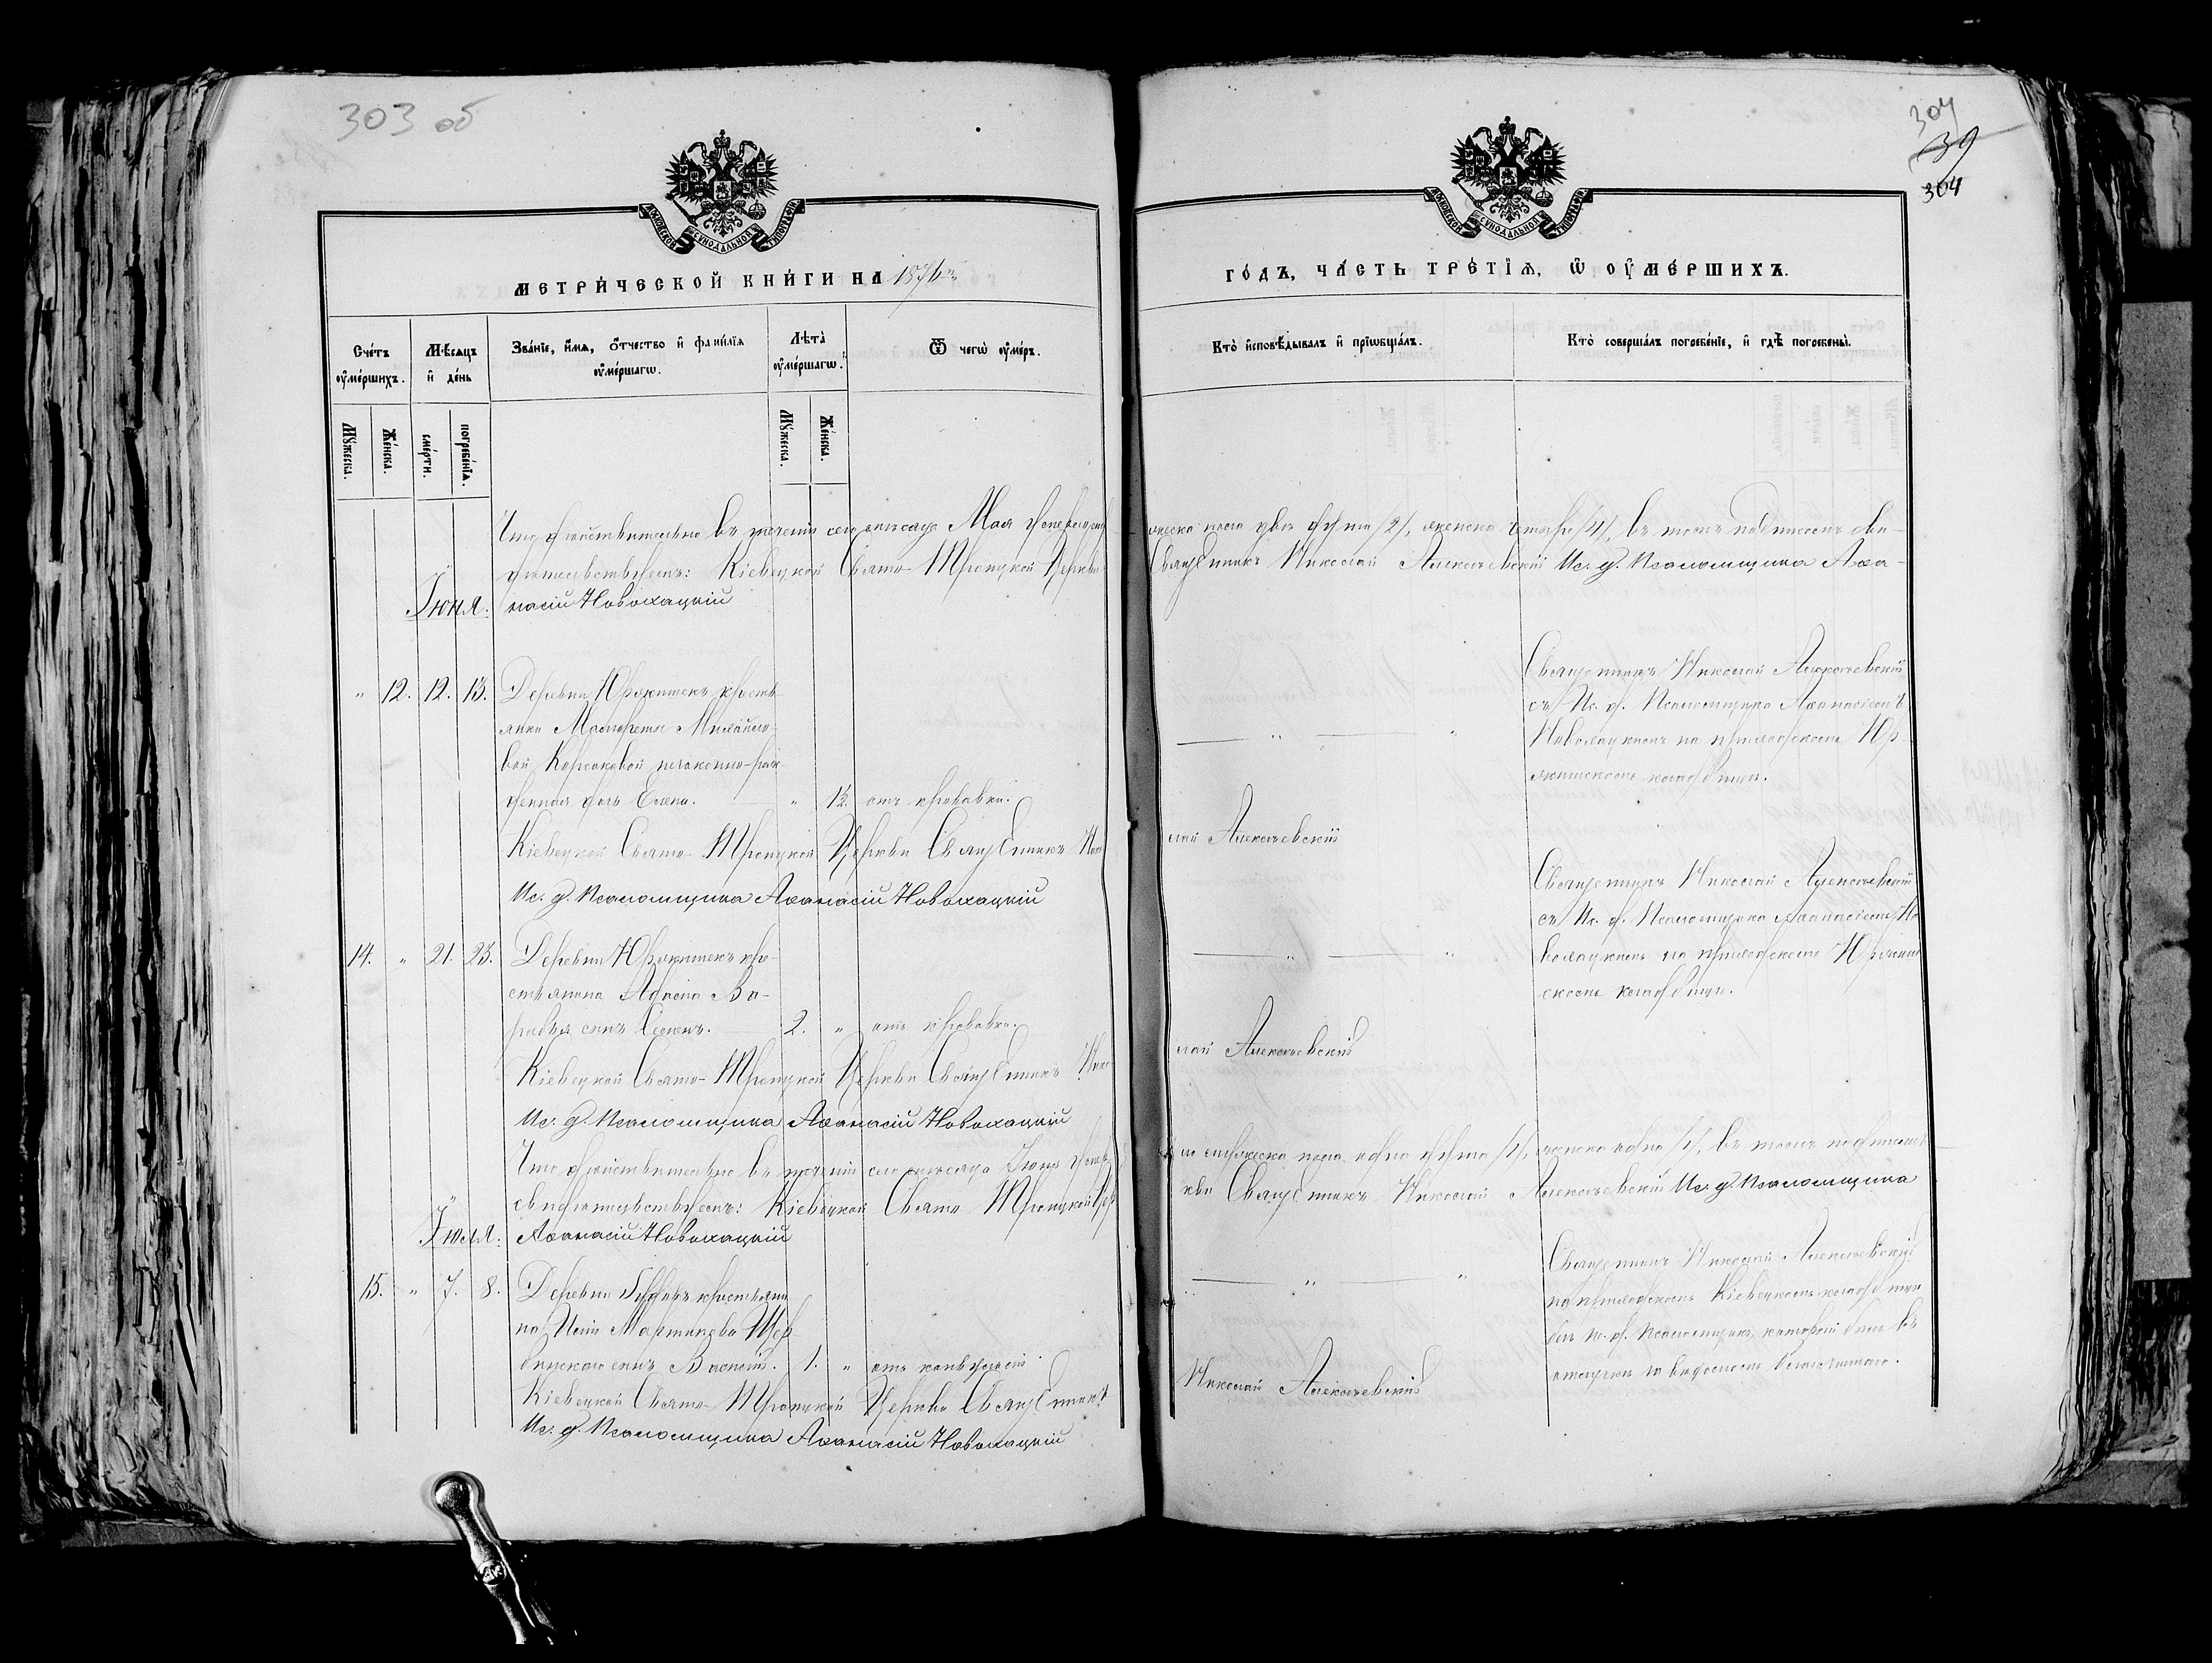 303 об
304
39
304
МОСКОВСКОЙ СѴНОДАЛЬНОЙ ТИПОГРАФІИ
МОСКОВСКОЙ СѴНОДАЛЬНОЙ ТИПОГРАФІИ
МЕТРИ́ЧЕСКОЙ КНИ́ГИ НА 1876
ГО́ДЪ, ЧА́СТЬ ТРЕ́ТІѦ, Ѡ ОУМЕ́РШИХЪ.
Сче́тъ оумéршихъ.
Мѣ́сяцъ и́ де́нь
Зва́нїе, и́мѧ, о́тчество и́ фами́лїѧ оумéршагѡ.
Лѣта̀ оумéршагѡ.
Ѿ чегѡ̀ оу́меръ.
Кто̀ и́сповѣ́дывалъ и́ прїѡбща́лъ.
Кто̀ соверша́лъ погребе́нїе, и́ гдѣ̀ погребены̀.
Мꙋ́жеска.
Же́нска.
сме́рти.
погребе́нїѧ.
Мꙋ́жеска.
Же́нска.
Что действительно въ течении сего месяца Мая
мужеска пола два /2/, женска четыре /4/, въ томъ подписомъ сви-
детельствуемъ: Кіевецкой Свято-Троицкой Церкви
Священникъ Николай Алексеевскій Ис. д. Псаломщика Афа-
насій Новохацкій
Іюня.
" 12. 12. 13. Деревни Юфжитекъ кресть
янки Маргреты
вой Корсаковой незаконно-рож
денная дочь Елена. " 12. отъ кровавки.
Священникъ Николай Алексеевскій
съ Ис. д. Псаломщика Афанасіемъ
Новохацкимъ на приходскомъ Юф
житскомъ кладбищи.
Кіевецкой Свято-Троицкой Церкви Священникъ Нико
лай Алексеевскій
Ис. д. Псаломщика Афанасій Новохацкій
14. " 21. 23. Деревни Юфжитекъ кре-
стьянина
сынъ Семенъ. 2. " отъ кровавки.
Священникъ Николай Алексеевскій
съ Ис. д. Псаломщика Афанасіемъ Но
вохацкимъ на приходскомъ
скомъ кладбищи.
Кіевецкой Свято-Троицкой Церкви Священникъ Нико
лай Алексеевскій
Ис. д. Псаломщика Афанасій Новохацкій
Что действительно въ течении сего месяца Іюня
мужеска пола одна /1/, женска одна /1/, въ томъ подписомъ
свидетельствуемъ: Кіевецкой Свято Троицкой Цер
кви Священникъ Николай Алексеевскій Ис. д. Псаломщика
Афанасій Новохацкій
Іюля.
15. " 7. 8. Деревни крестьяни
на Мартинова Щер
бинскаго сынъ Василій. 1. " отъ конвульсіи.
Священникъ Николай Алексеевскій
на приходскомъ Кіевецкомъ кладбищи
безъ Ис. д. Псаломщика, который былъ въ
Кіевецкой Свято-Троицкой Церкви Священникъ
Николай Алексеевскій
Ис. д. Псаломщика Афанасій Новохацкій